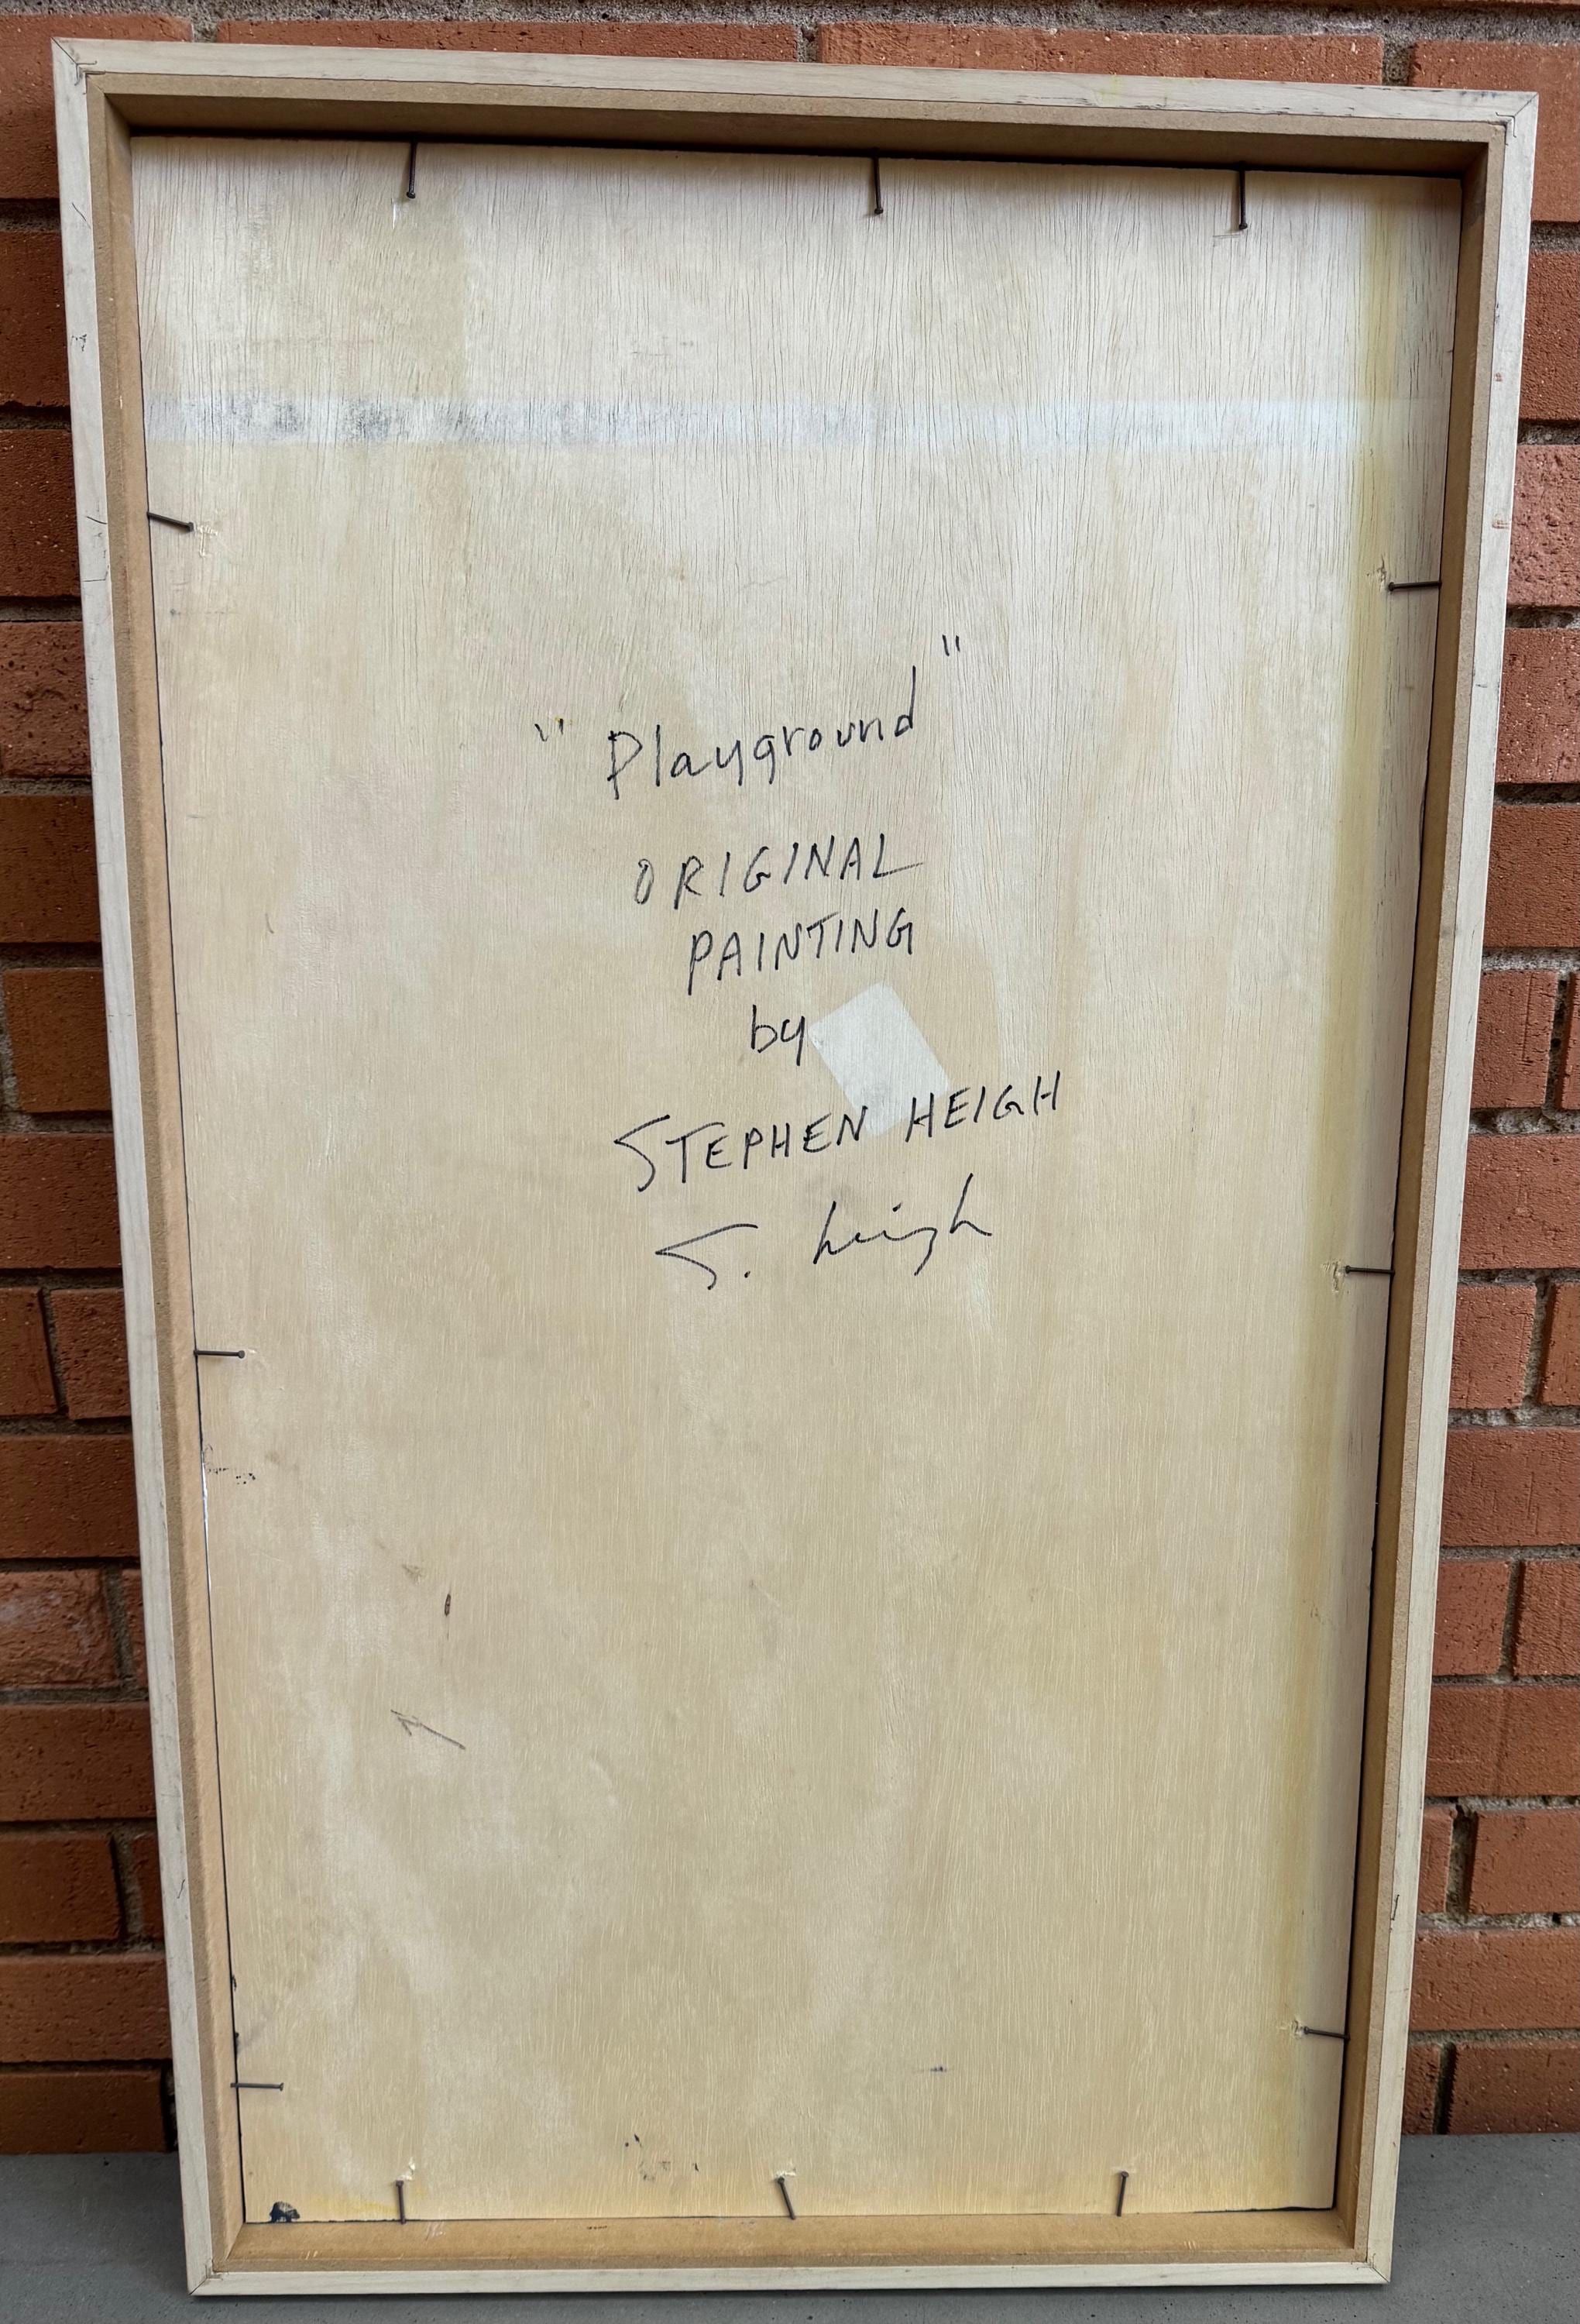 " Playground "
ORIGINAL
PAINTING
by
STEPHEN HEIGH
S. Heigh